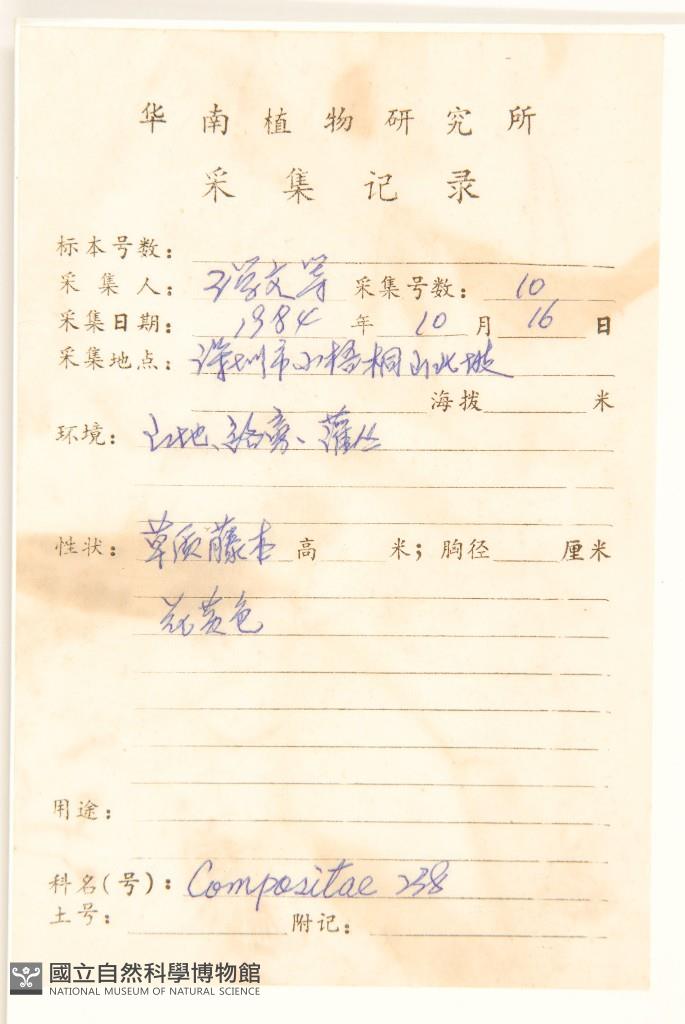 华南植物研究所
采集记录
标本号数：
采集人： 文等 采集号数： 10
采集日期： 1984 年 10 月 16 日
采集地点： 深圳市小梧桐山北坡
海拨 米
环境： 山地、路旁、灌丛
性状： 草质藤本 高 米；胸径 厘米
花黄色
用途：
科名(号)： Compositae 238
土号： 附记：
國立自然科學博物館
NATIONAL MUSEUM OF NATURAL SCIENCE